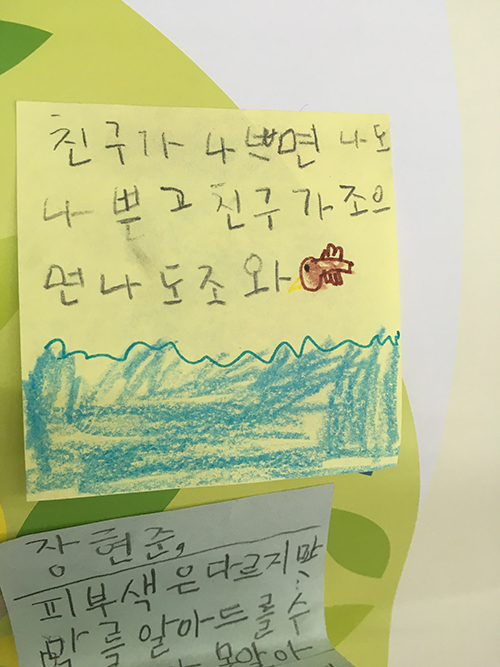 친구가 나쁘면 나도
나 뿌고 친구가 조으
면 나도 조와
장현준,
피부색은다르지만
맘를알아드를수
몰알아